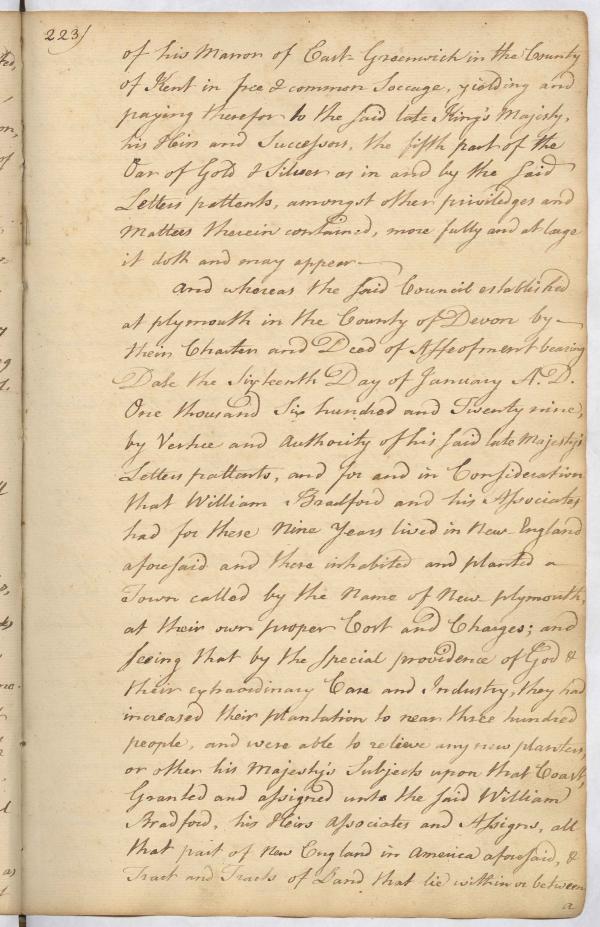 223)
of his Manor of East-Greenwich in the County
of Kent in free & common Soccage, yielding and
paying therefor to the said late King's Majesty,
his Heirs and Successors, the fifth part of the
Oar of Gold & Silver as in and by the said
Letters pattents, amongst other priviledges and
Matters therein contained, more fully and at large
it doth and may appear —
And whereas the said Council established
at plymouth in the County of Devon by —
their Charter and Deed of Affeofment bearing
Date the Sixteenth Day of January A. D.
One thousand Six hundred and Twenty nine,
by Vertue and Authority of his said late Majesty's
Letters pattents, and for and in Consideration
that William Bradford and his Associates
had for these Nine Years lived in New-England
aforesaid and there inhabited and planted a
Town called by the Name of New-plymouth,
at their own proper Cost and Charges; and
seeing that by the special providence of God &
their extraordinary Care and Industry, they had
increased their plantation to near three hundred
people, and were able to relieve any new planters,
or other his Majesty's Subjects upon that Coast,
Granted and assigned unto the said William
Bradford, his Heirs Associates and Assigns, all
that part of New England in America aforesaid, &
Tract and Tracts of Land that lie within or between
a